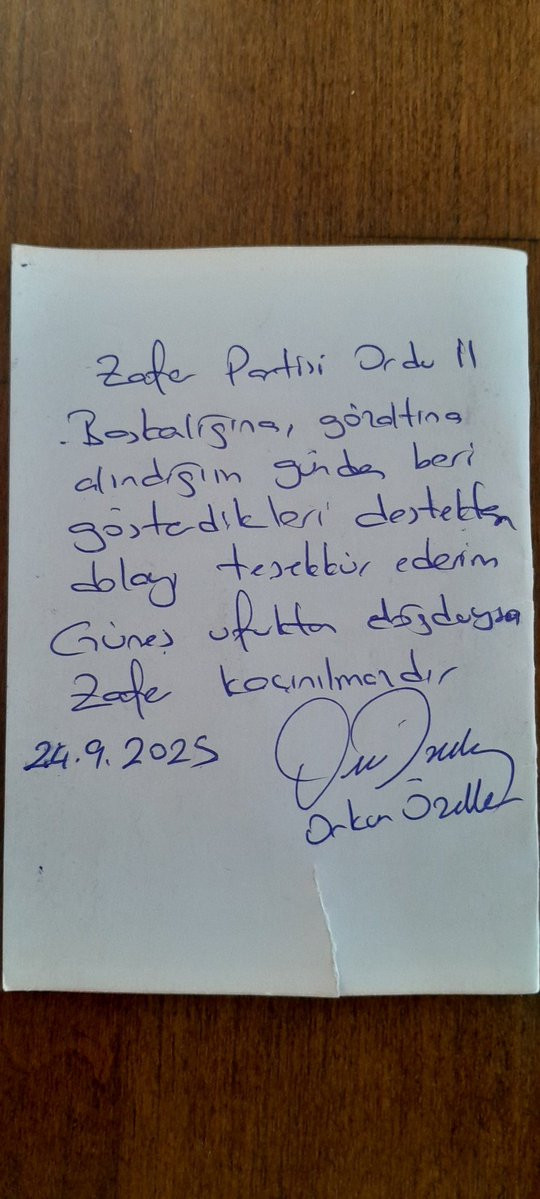 Zafer Partisi Ordu İl
Başkalığına, gözaltına
alındığım günden beri
gösterdikleri destekten
dolayı teşekkür ederim
Güneş ufuktan doğduysa
Zafer kaçınılmazdır
24.9.2025
Orkun Özeller